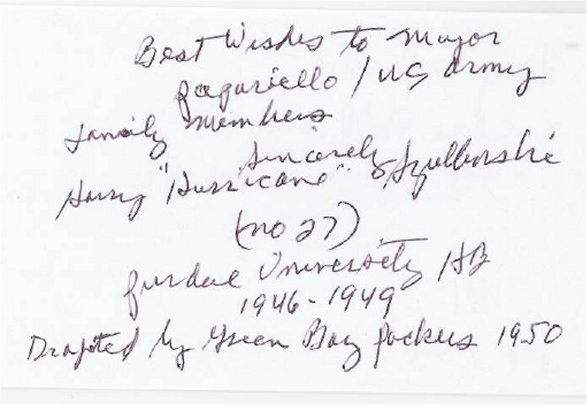 Best Wishes to Major
Pagariello / US Army
Family Members
Sincerely
Harry "Hurricane" Szulborski
(no 27)
Purdue University HB
1946-1949
Drafted by Green Bay Packers 1950